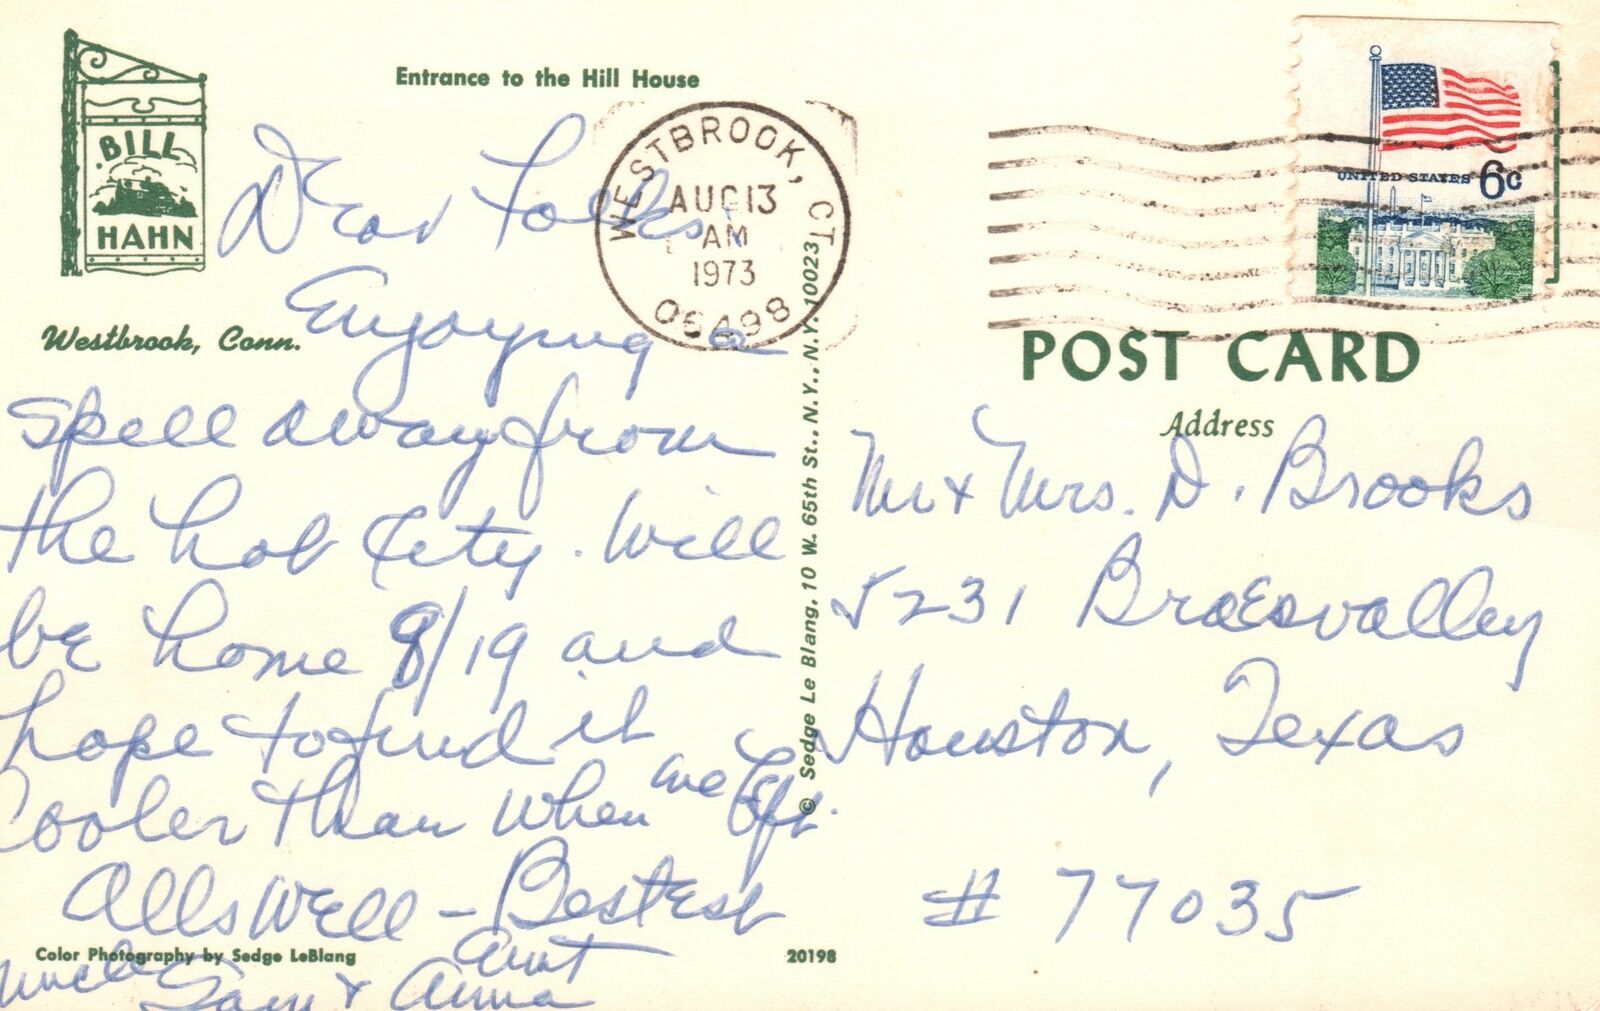 BILL
HAHN
Westbrook, Conn.
Entrance to the Hill House
WESTBROOK, CT
AUG 13
AM
1973
06498
UNITED STATES 6c
POST CARD
Address
Dear Folks,
Enjoying a
spell away from
the hot City. Will
be home 8/19 and
hope to find it
Cooler than when we left.
Alls Well - Bestest
Uncle Sam & Aunt Anna
Mr & Mrs. D. Brooks
5231 Braesvalley
Houston, Texas
# 77035
© Sedge Le Blang, 10 W. 65th St., N.Y., N.Y. 10023
Color Photography by Sedge LeBlang
20198